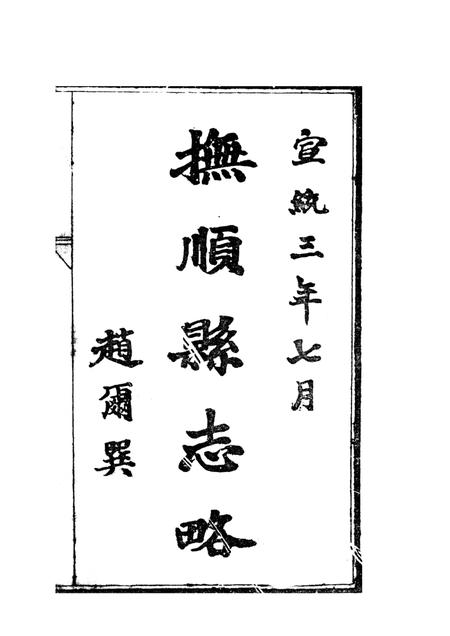 宣統三年七月
撫順縣志略
趙爾巽